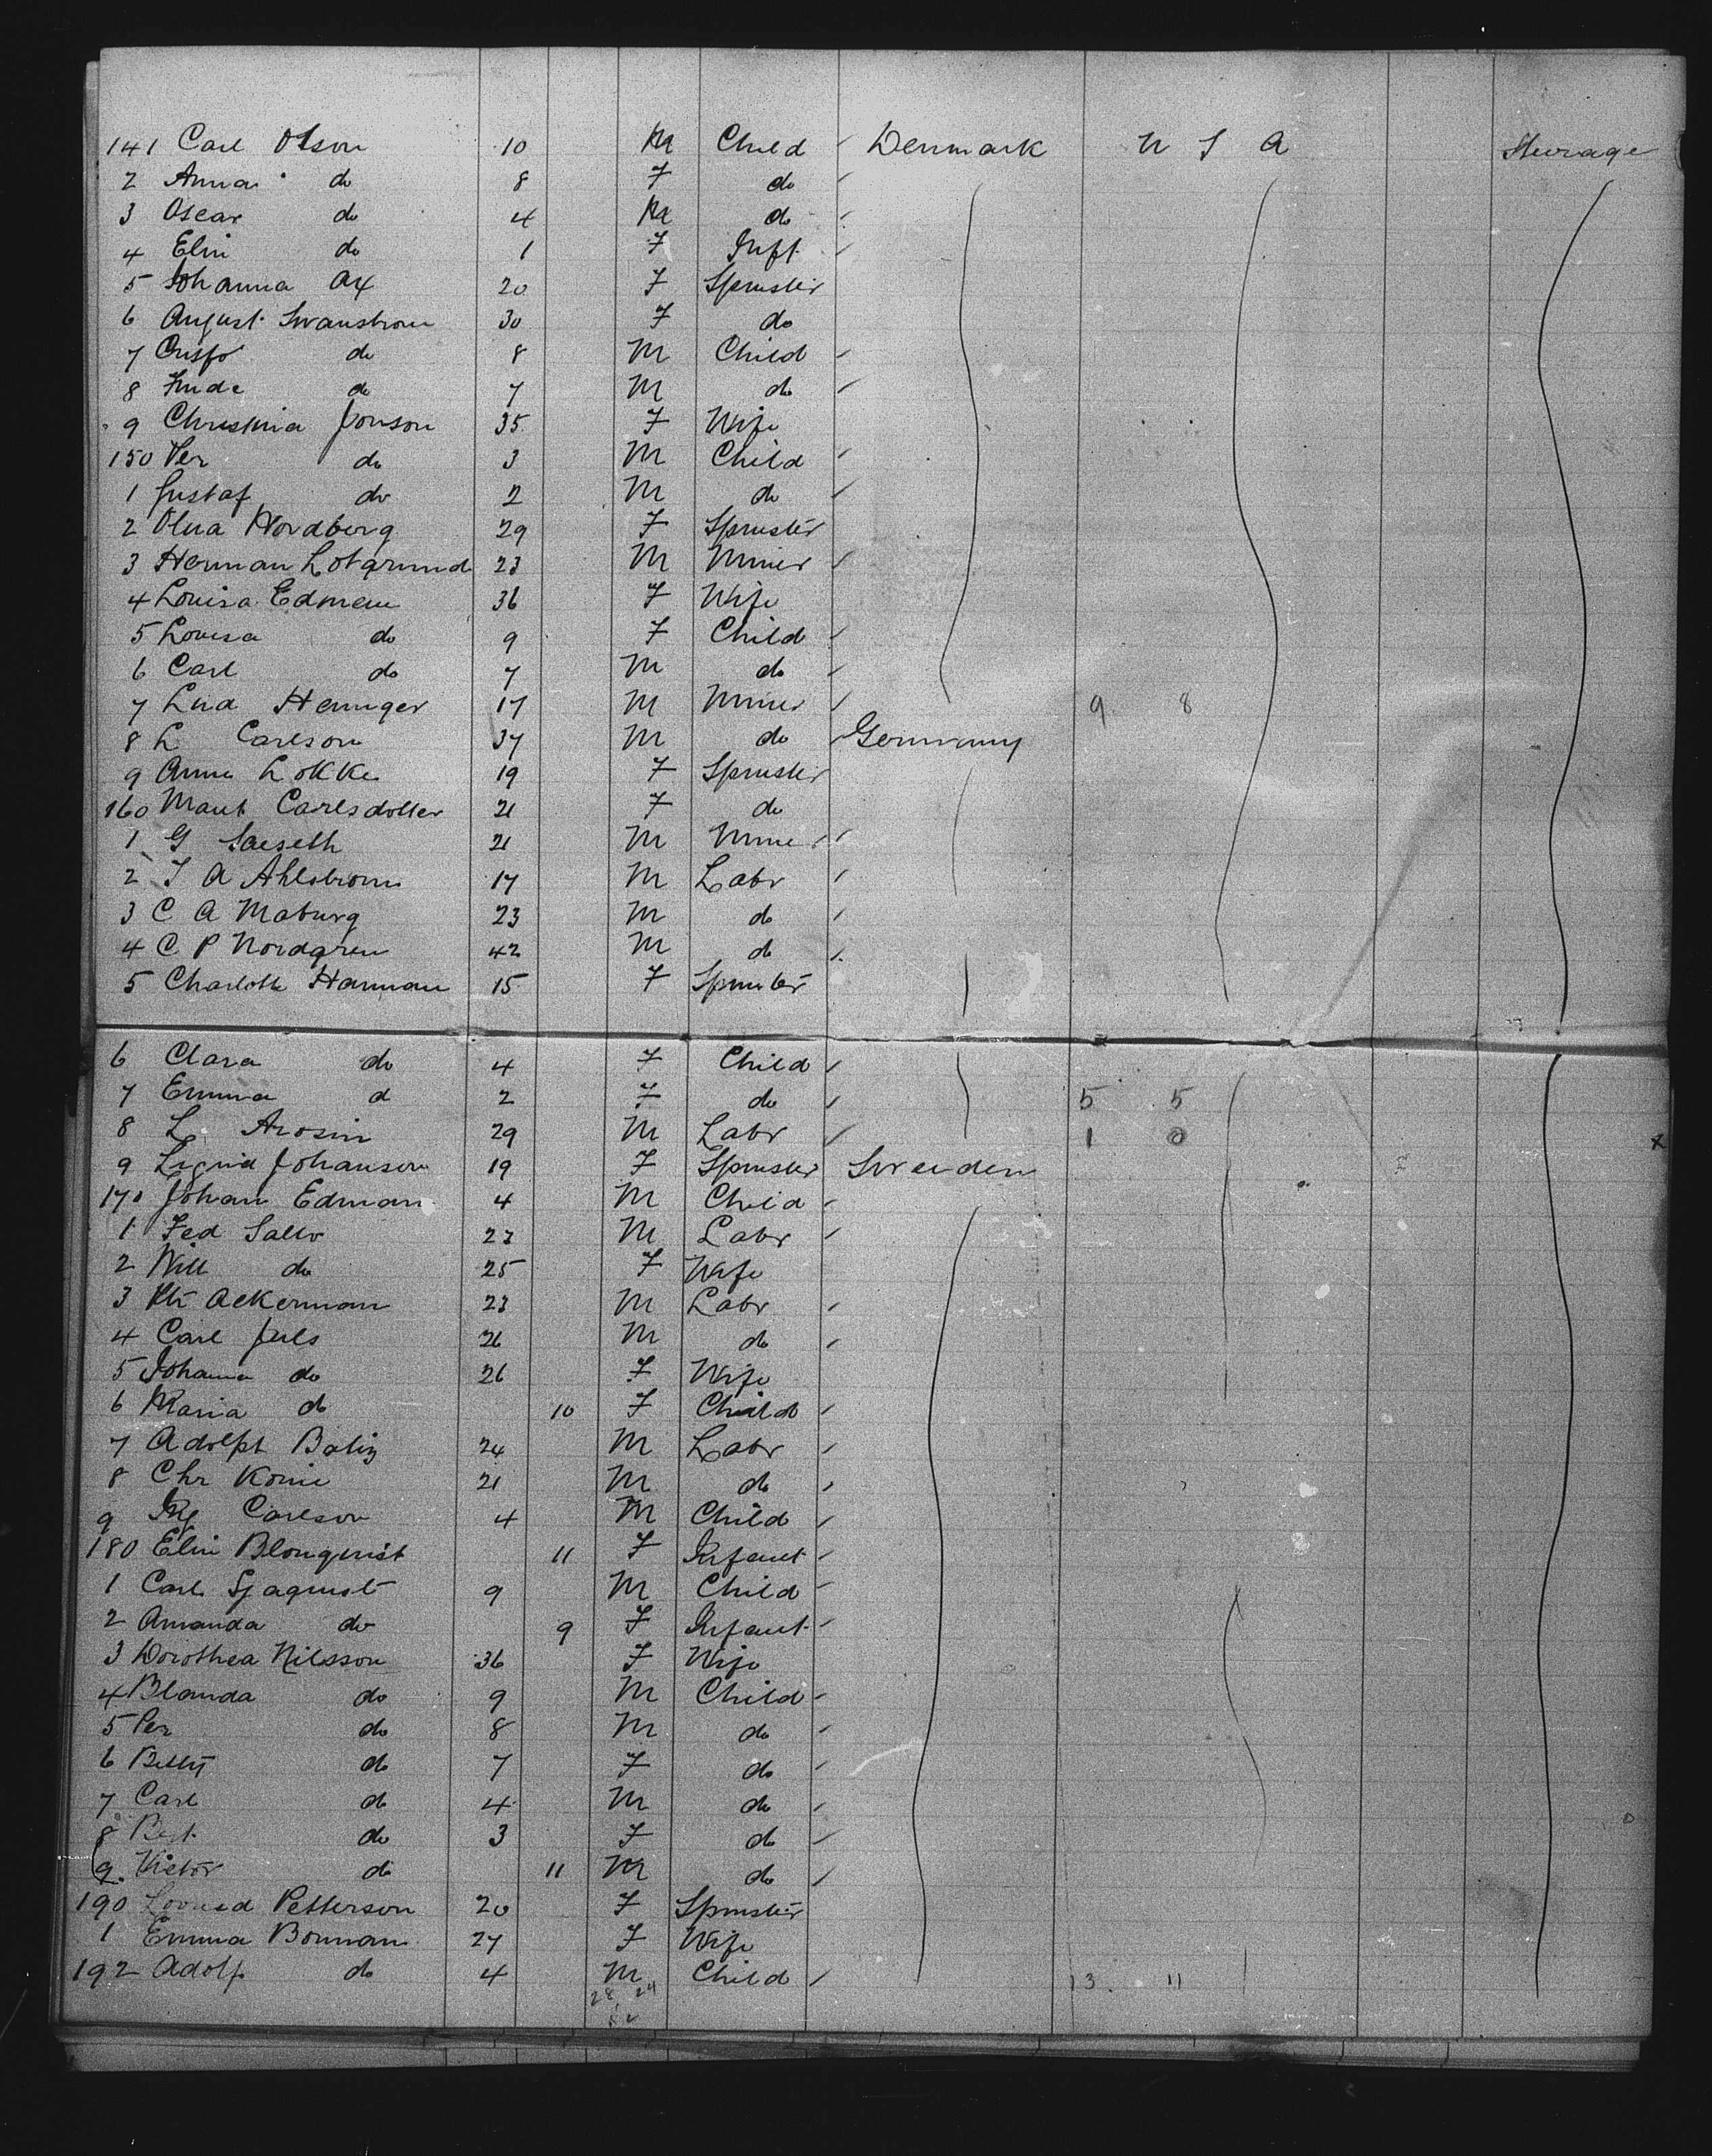 141 Carl Olson 10 M Child Denmark U S A Steerage
2 Anna do 8 F do
3 Oscar do 4 M do
4 Elin do 1 F Inft
5 Johanna Ax 20 F Spinster
6 August Swanstrom 30 F do
7 do 8 M Child
8 do 7 M do
9 Christina Jonson 35 F Wife
150 Per do 3 M Child
1 Gustaf do 2 M do
2 Olua Nordberg 29 F Spinster
3 Herman Lotgrund 23 M Miner
4 Louisa Edman 36 F Wife
5 Lovisa do 9 F Child
6 Carl do 7 M do
7 Lud Heninger 17 M Miner 9 8
8 L Carlson 37 M do Germany
9 Anna Lokke 19 F Spinster
160 Carlsdotter 21 F do
1 G Saeseth 21 M Miner
2 J A Ahlstrom 17 M Labr
3 C A Moburg 23 M do
4 C P Nordgren 42 M do
5 Charlotte Harman 15 F Spinster
6 Clara do 4 F Child
7 Emma d 2 F do 5 5
8 L Arosin 29 M Labr 1 0
9 Sigrid Johanson 19 F Spinster Sweeden
170 Johan Edman 4 M Child
1 Fed 23 M Labr
2 Will do 25 F Wife
3 Ackerman 23 M Labr
4 Carl Juls 26 M do
5 Johanna do 26 F Wife
6 Maria do 10 F Child
7 Adolph 24 M Labr
8 Chr Konie 21 M do
9 Carlson 4 M Child
180 Elin Blonquist 11 F Infant
1 Carl Sjaquist 9 M Child
2 Amanda do 9 F Infant
3 Dorothea Nilsson 36 F Wife
4 Blanda do 9 M Child
5 Per do 8 M do
6 Betty do 7 F do
7 Carl do 4 M do
8 do 3 F do
9 Victor do 11 M do
190 Petterson 20 F Spinster
1 Emma Bonman 27 F Wife
192 Adolf do 4 M Child 13 11
28 24